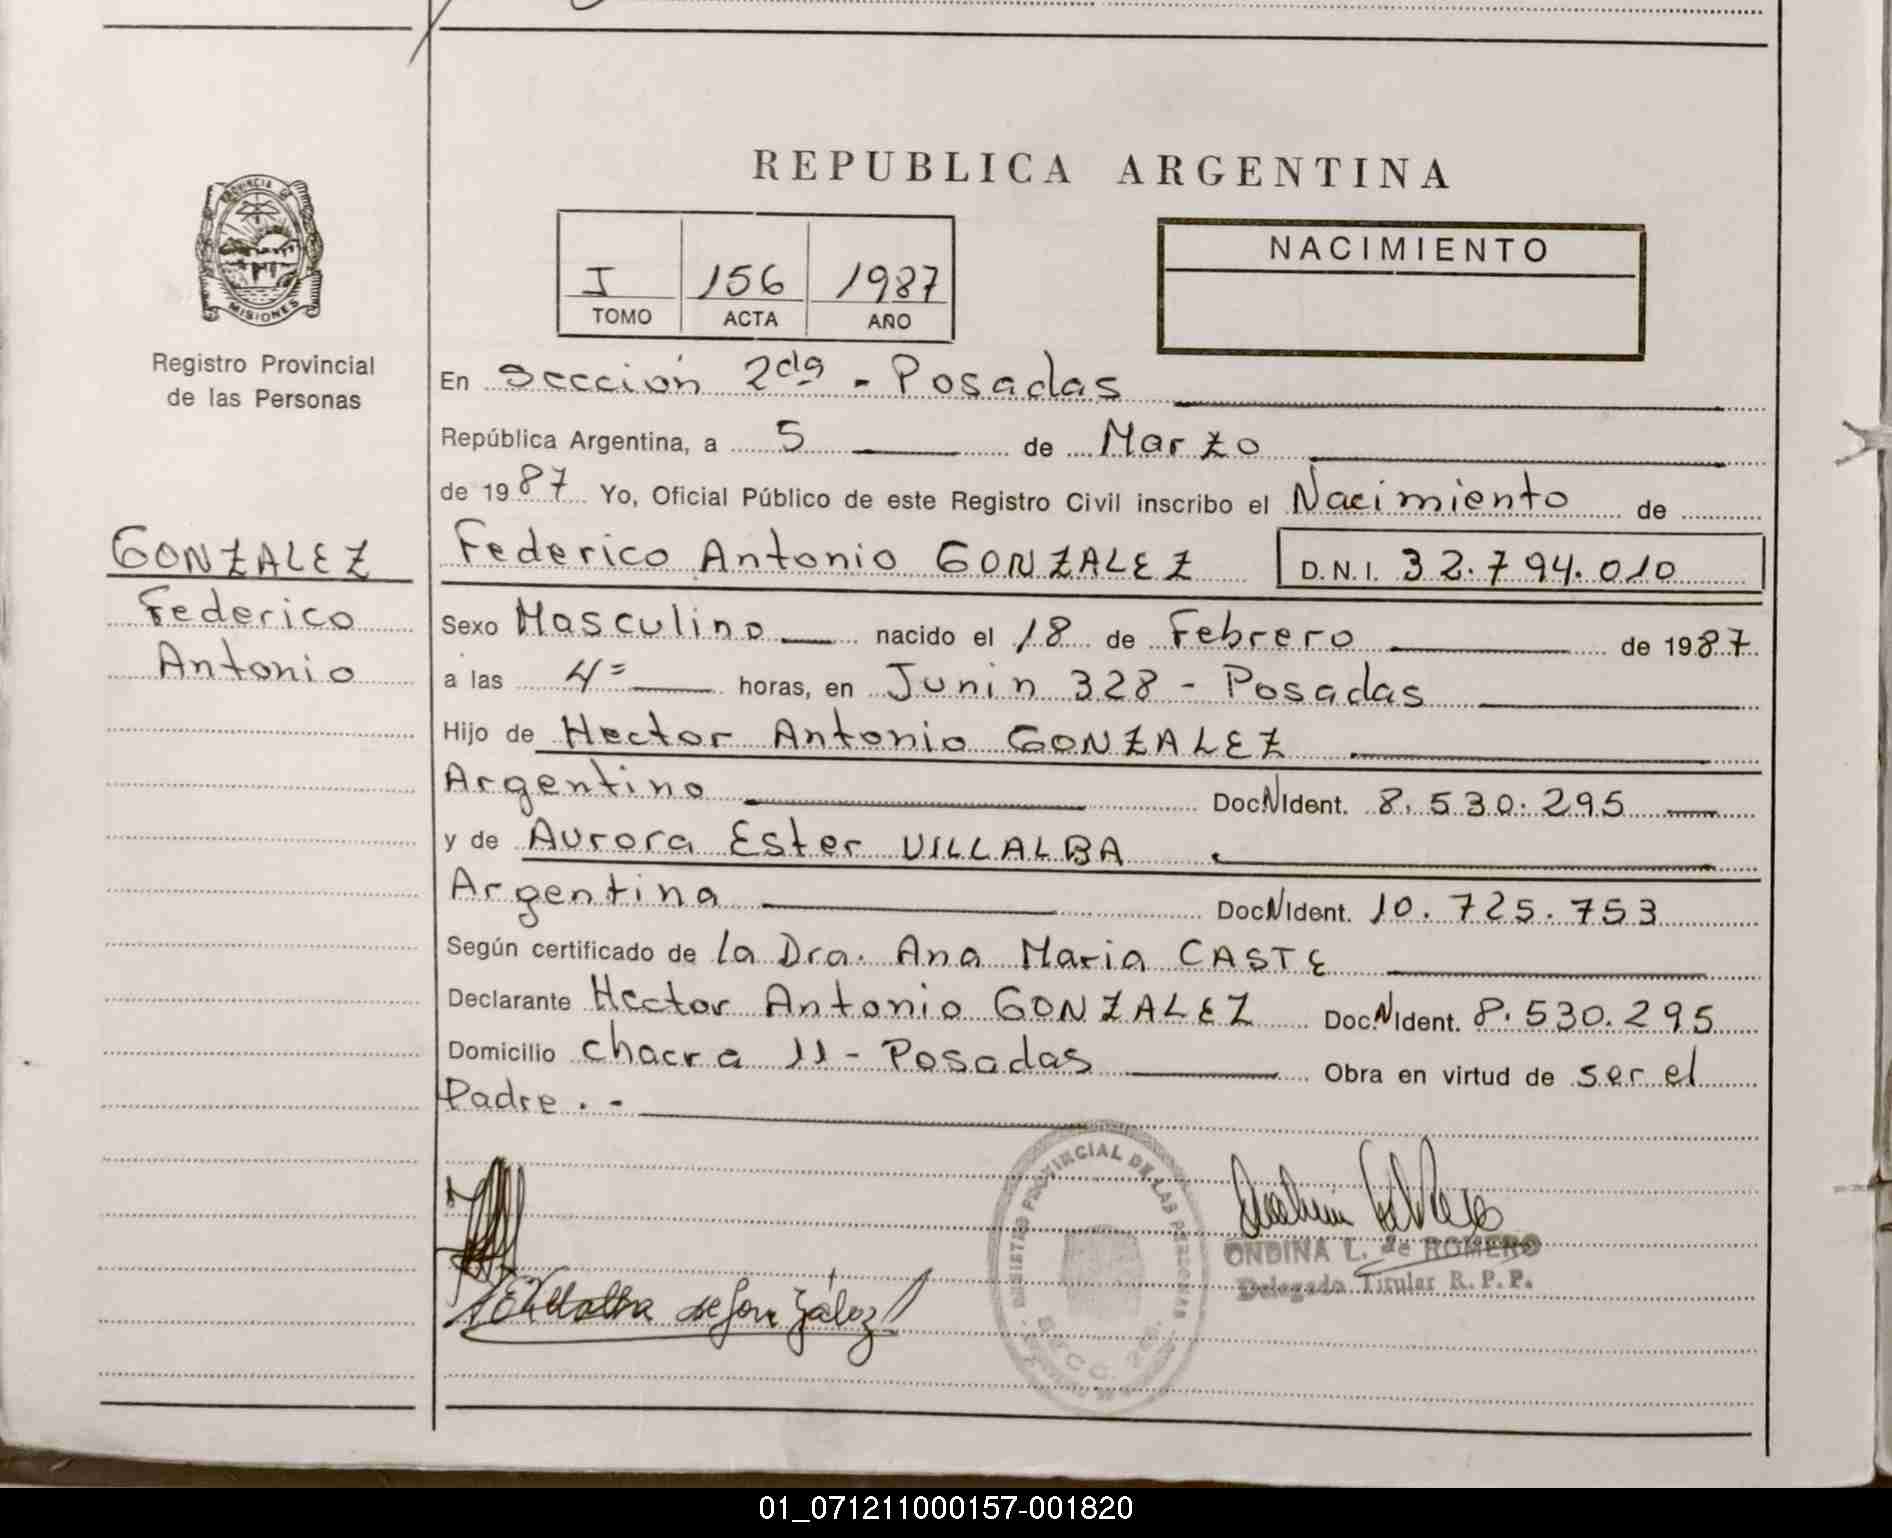 REPUBLICA ARGENTINA
PROVINCIA DE
MISIONES
Registro Provincial
de las Personas
I 156 1987
TOMO ACTA AÑO
NACIMIENTO
En Sección 2da - Posadas
República Argentina, a 5 de Marzo
de 1987 Yo, Oficial Público de este Registro Civil inscribo el Nacimiento de
GONZALEZ
Federico
Antonio
Federico Antonio GONZALEZ D.N.I. 32.794.010
Sexo Masculino nacido el 18 de Febrero de 1987
a las 4= horas, en Junin 328 - Posadas
Hijo de Hector Antonio GONZALEZ
Argentino Doc.N Ident. 8.530.295
y de Aurora Ester VILLALBA
Argentina Doc.N Ident. 10.725.753
Según certificado de la Dra. Ana Maria CASTE
Declarante Hector Antonio GONZALEZ Doc.N Ident. 8.530.295
Domicilio chacra 11 - Posadas Obra en virtud de ser el
Padre. -
REGISTRO PROVINCIAL DE LAS PERSONAS
SECC. 2da.
ONDINA L. de ROMERO
Delegado Titular R.P.P.
Villalba de González
01_071211000157-001820